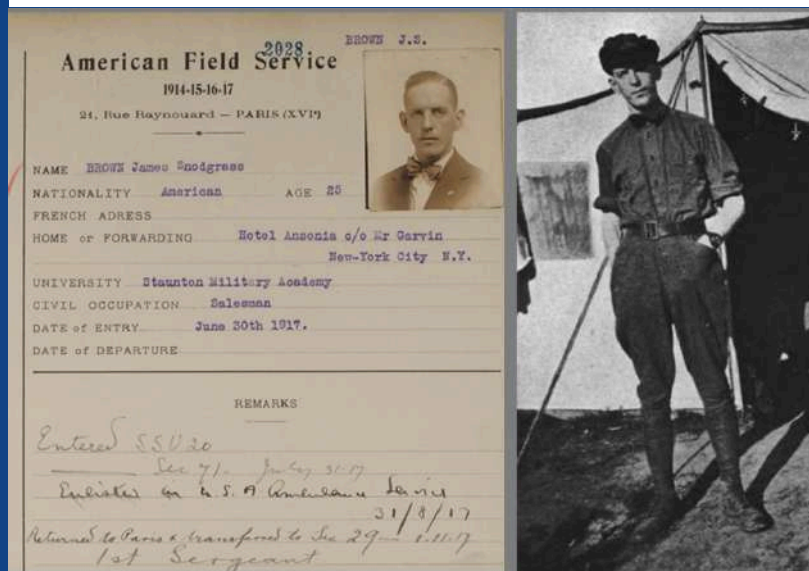 BROWN J.S.
2028
American Field Service
1914-15-16-17
21, Rue Raynouard — PARIS (XVIᵉ)
NAME BROWN James Snodgrass
NATIONALITY American AGE 25
FRENCH ADRESS
HOME or FORWARDING Hotel Ansonia c/o Mr Garvin
New-York City N.Y.
UNIVERSITY Staunton Military Academy
CIVIL OCCUPATION Salesman
DATE of ENTRY June 30th 1917.
DATE of DEPARTURE
REMARKS
Entered SSU 20
Sec 71. July 31-17
Enlisted in U.S.A Ambulance Service
31/8/17
Returned to Paris & transferred to Sec 29 1.11.17
1st Sergeant